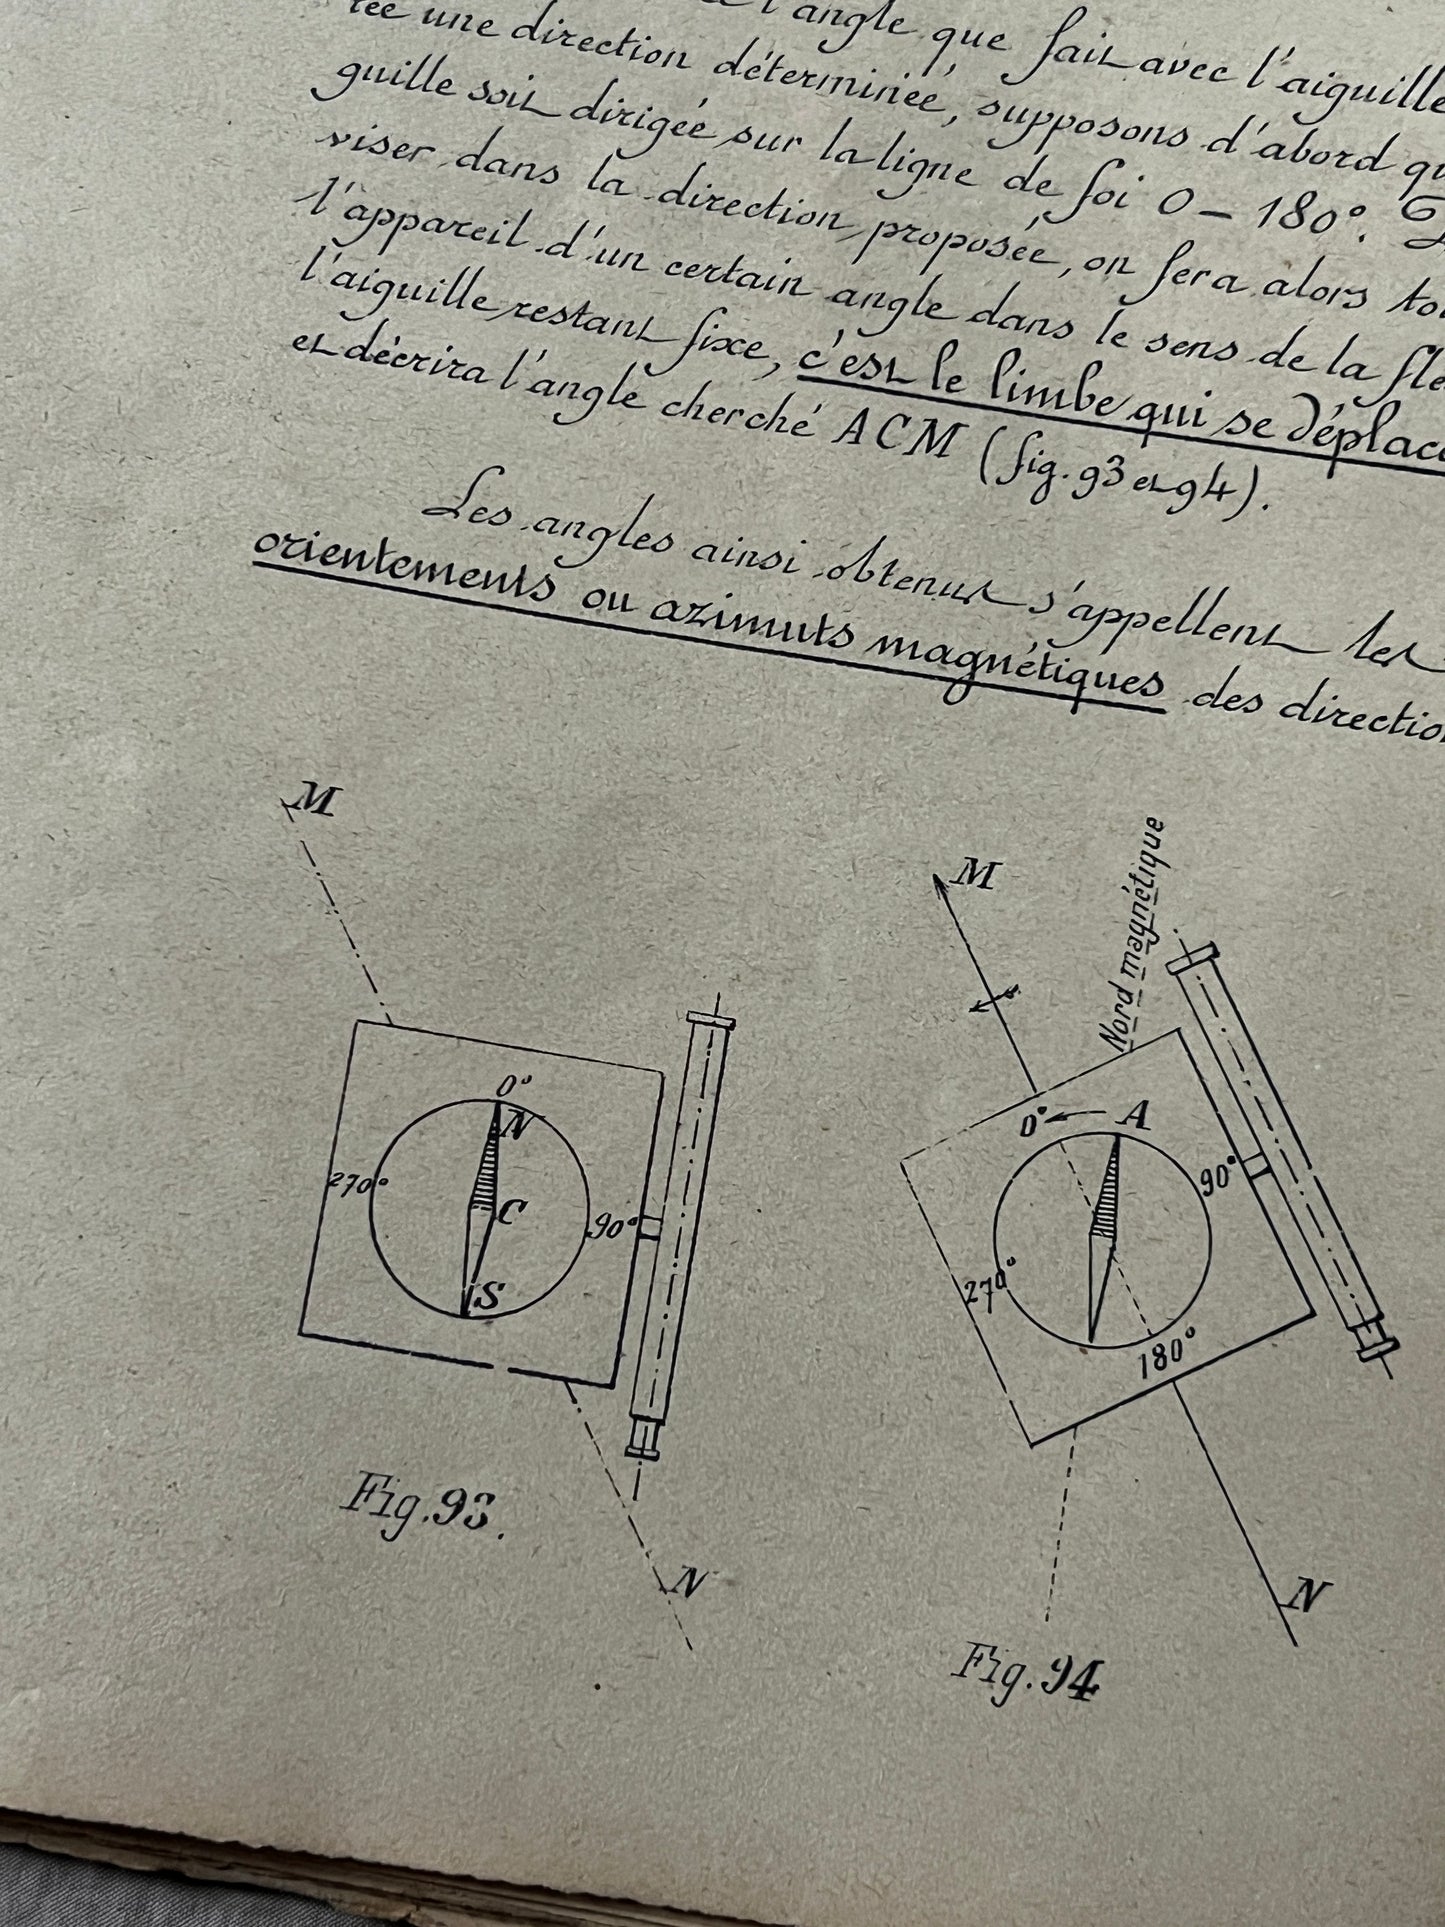 l'angle que fait avec l'aiguille
une direction déterminée, supposons d'abord qu
guille soit dirigée sur la ligne de foi 0 - 180°.
viser dans la direction proposée, on fera alors
l'appareil d'un certain angle dans le sens de la
l'aiguille restant fixe, c'est le limbe qui se déplace
et décrira l'angle cherché ACM (fig. 93 et 94).
Les angles ainsi obtenus s'appellent les
orientements ou azimuts magnétiques des directio
M
0°
N
270°
C
90°
S
Fig. 93.
N
M
Nord magnétique
0°
A
90°
270°
180°
N
Fig. 94